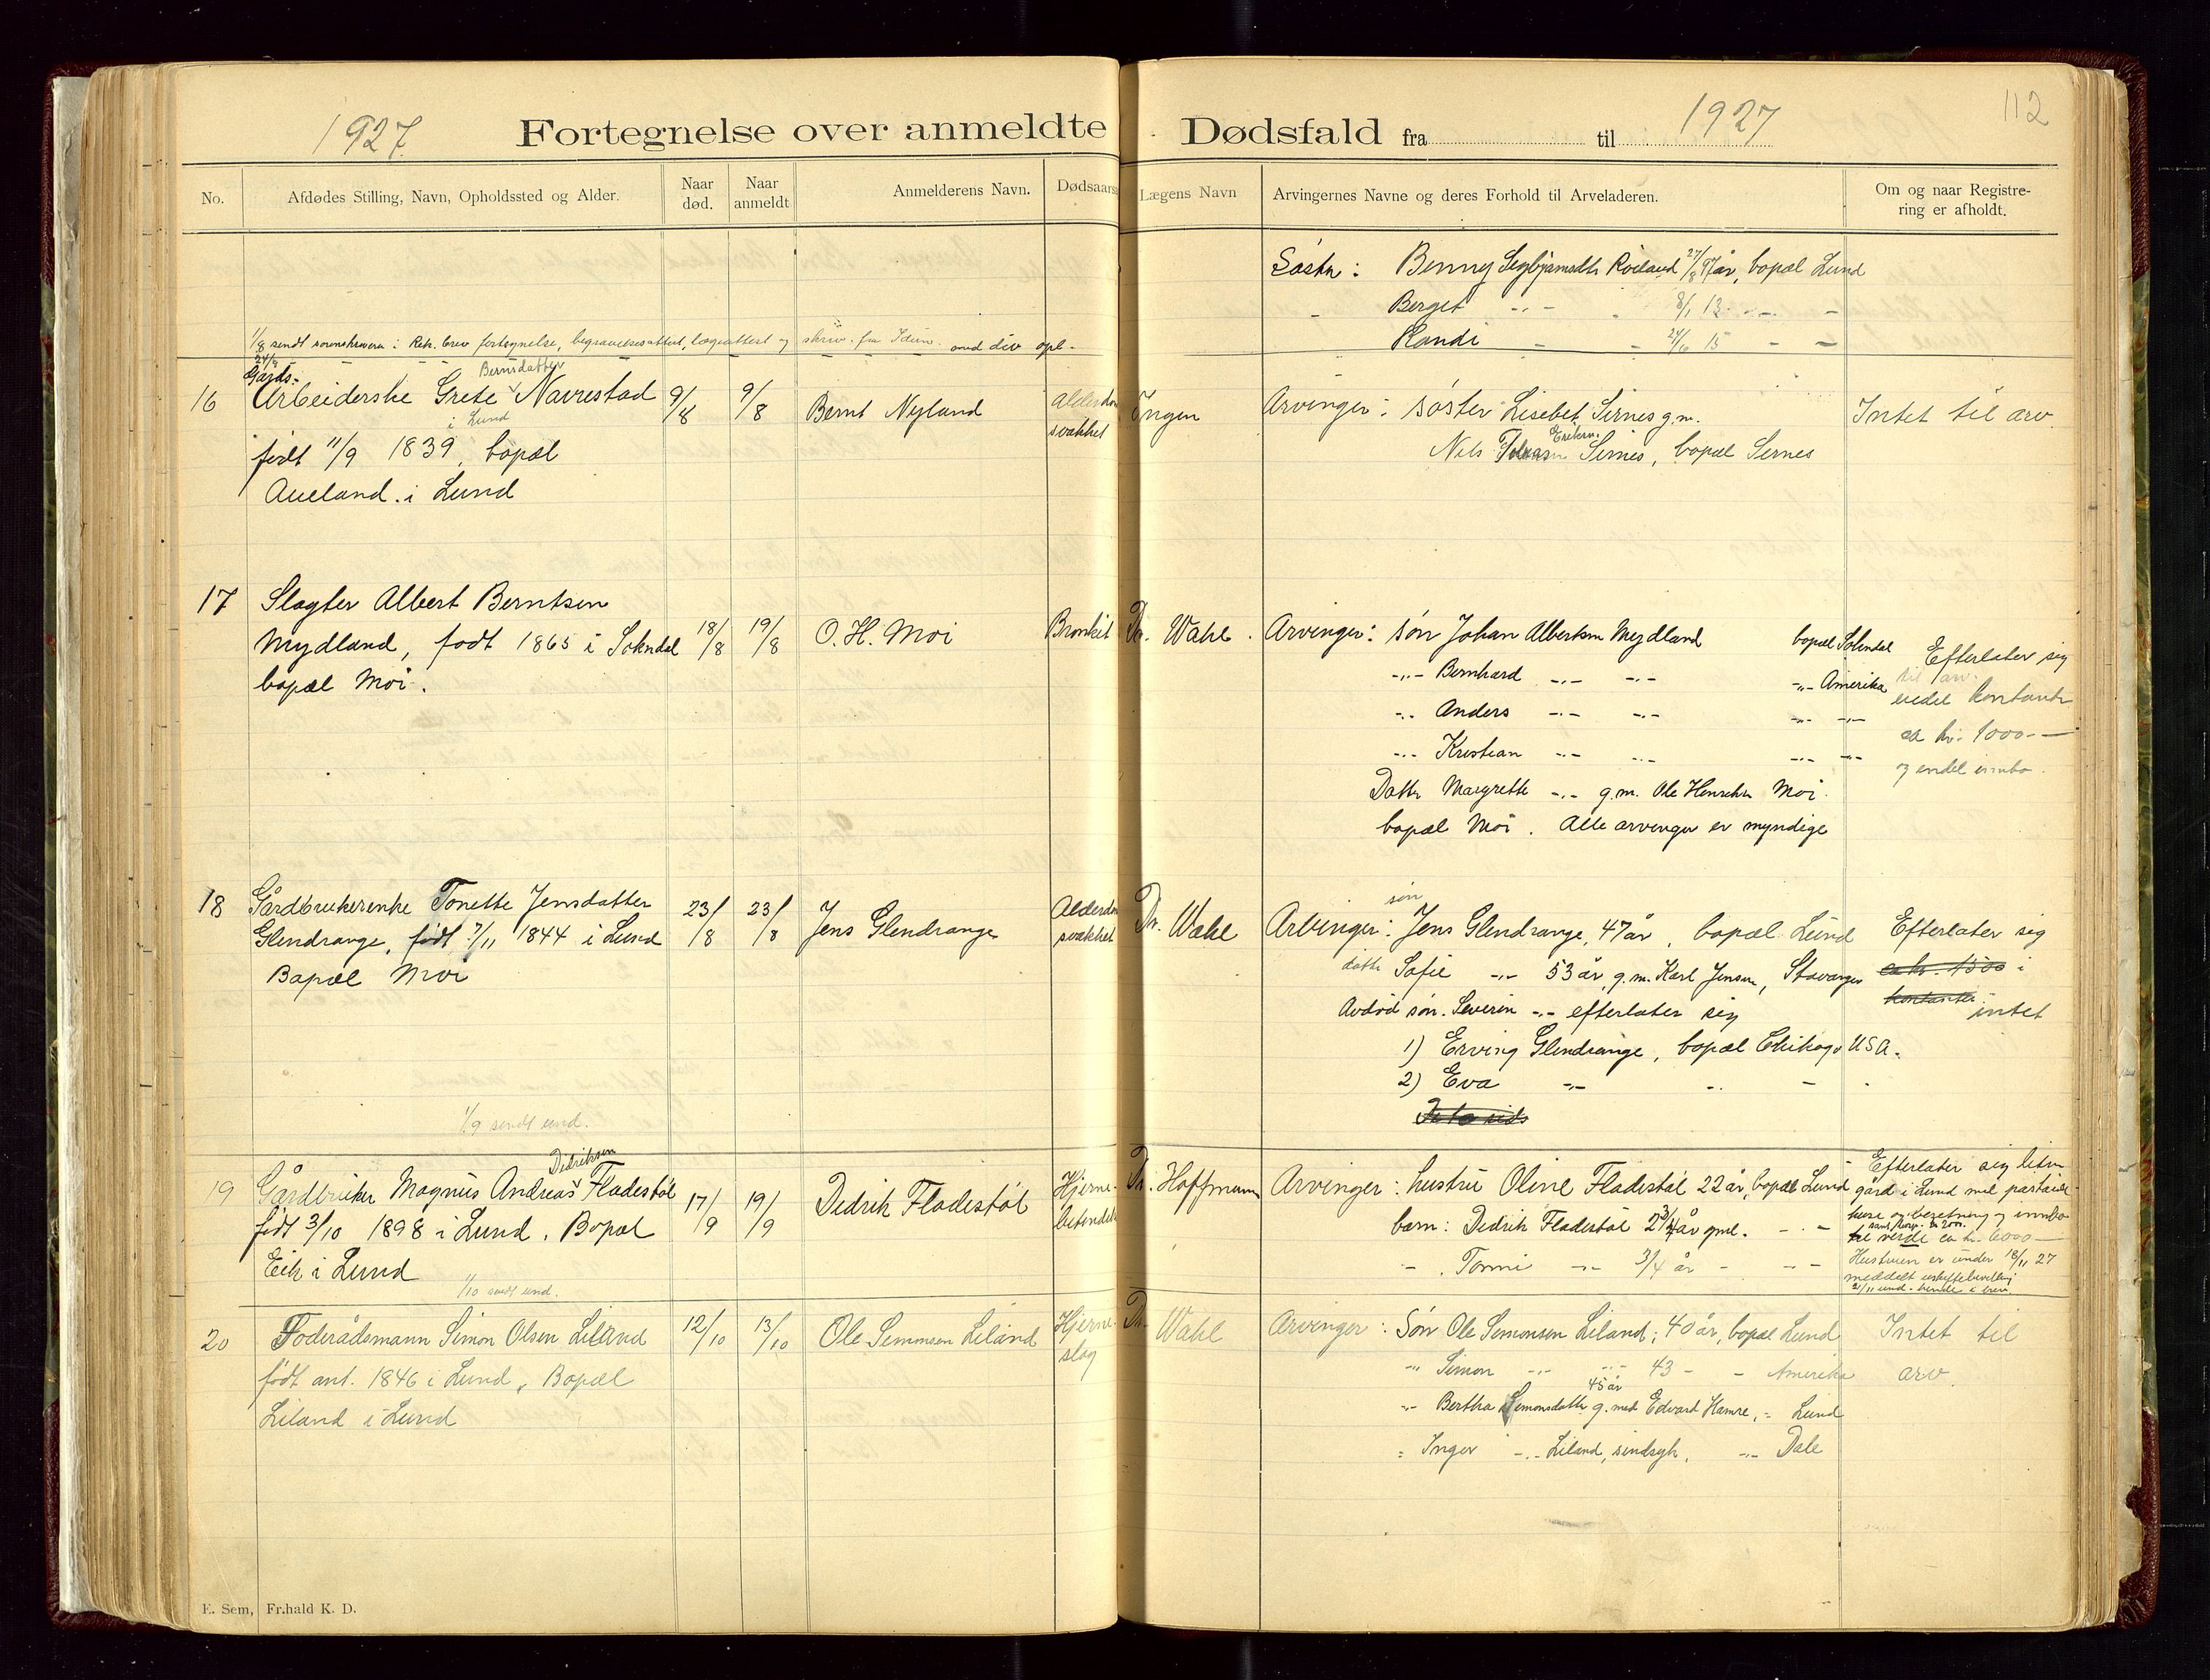 1927
Fortegnelse over anmeldte Dødsfald fra til 1927
112
No.
Afdødes Stilling, Navn, Opholdssted og Alder.
Naar død.
Naar anmeldt
Anmelderens Navn.
Dødsaars
Lægens Navn
Arvingernes Navne og deres Forhold til Arveladeren.
Om og naar Registre-
ring er afholdt.
Søster: Benny Roiland 27/8 år, bopæl Lund
- Berget -"- 8/1 13 -"- -
Randi - - 24/6 15 - -
1/8 sendt sorenskriveren i Rek. brev fortegnelse, begravelsesattest, lægeattest og skriv. fra Idun med div opl-
24/8
16
Gårds-
Bernsdatter
Arbeiderske Grete Navrestad
i Lund
født 11/9 1839, bopæl
Aueland. i Lund
9/8
9/8
Bernt Nyland
Alderdom
svakhet
Ingen
Arvinger: søster Lisebet Sirnes g.m.
Nils Sirnes, bopæl Sirnes
Intet til arv.
17
Slagter Albert Berntsen
Mydland, født 1865 i Sokndal
bopæl Moi.
18/8
19/8
O. H. Moi
Bronkit
Dr. Wahl.
Arvinger: søn Johan Albertsen Mydland bopæl Sokndal
-"- Bernhard -"- -"- -"- Amerika
-"- Anders -"- -"- -"- -"-
-"- Kristian -"- -"- -"- -"-
Datter Margrethe -"- g.m. Ole Henrik Moi.
bopæl Moi. Alle arvinger er myndige
Efterlater sig
til arv.
endel kontanter
ca kr. 1000.-
og endel innbo.
18
Gårdbrukerenke Tonette Jensdatter
Glendrange, født 7/11 1844 i Lund
Bopæl Moi
1/9 sendt und.
23/8
23/8
Jens Glendrange
Alderdom
svakhet
Dr. Wahl
søn
Arvinger: Jens Glendrange, 47 år, bopæl Lund
datter Sofie -"- 53 år, g.m. Karl Jensen, Stavanger
Avdød søn. Severin -"- efterlater sig
1) Erving Glendrange, bopæl Chikago USA.
2) Eva -"- -"- -
Efterlater sig
ca kr. 1500 i
kontanter
intet
19
Didriksen
Gårdbruker Magnus Andreas Fladestøl
født 3/10 1898 i Lund. Bopæl
Eik i Lund
1/10 sendt und.
17/9
19/9
Didrik Fladestøl
Hjerne-
betendelse
Dr. Hoffmann
Arvinger: hustru Oline Fladestøl 22 år, bopæl Lund
barn: Didrik Fladestøl 2 3/4 år gml. - " -
- . Tonni -"- 3/4 år - - -
Efterlater sig liten
gård i Lund med
huse og besetning og innbo
verdi ca kr. 6000-
Hustruen er under 18/11 27
meddelt uskiftebevilling
20
Foderådsmann Simon Olsen Liland
født ant. 1846 i Lund, Bopæl
Liland i Lund
12/10
13/10
Ole Simonsen Liland
Hjerne-
slag
Dr. Wahl
Arvinger: Søn Ole Simonsen Liland, 40 år, bopæl Lund
-"- Simon -"- -"- 43 - - Amerika
45 år
-"- Bertha Simonsdatter g. med Edvard Hamre, -"- Lund
-"- Inger -"- Liland, sindsyk, -"- Dale
Intet til
arv.
E. Sem, Fr.hald K. D.